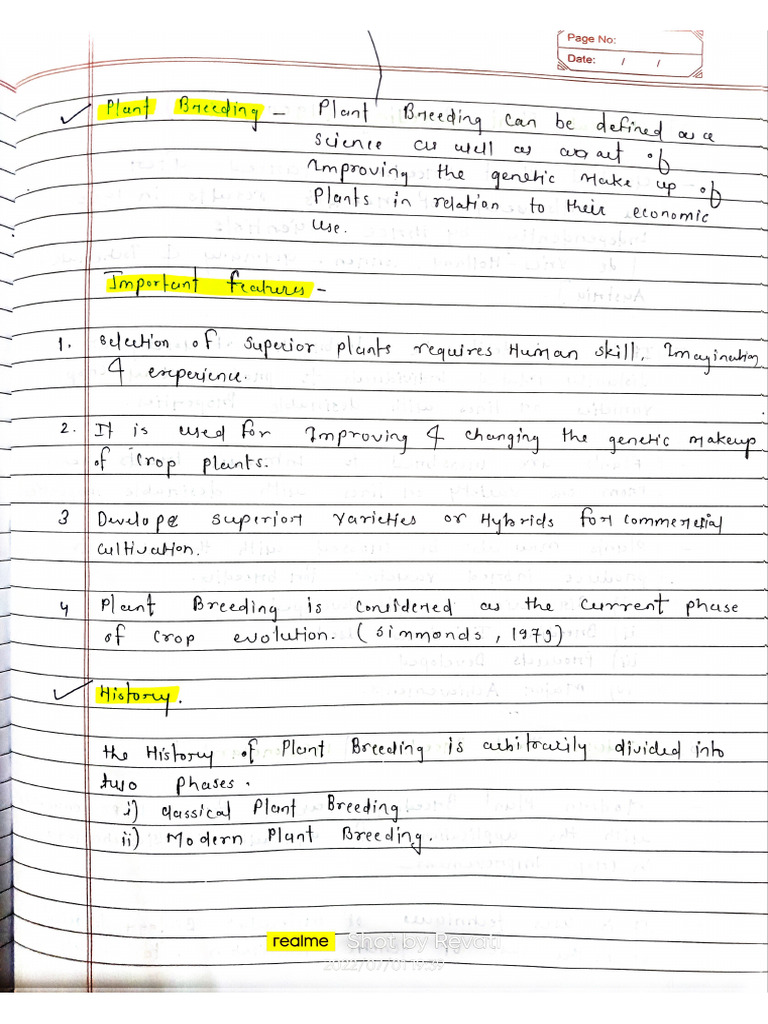 Page No:
Date: / /
Plant Breeding - Plant Breeding can be defined as a
science as well as an art of
Improving the genetic Make up of
Plants in relation to their economic
use.
Important features -
1. Selection of Superior plants requires Human skill, Imagination
& experience.
2. It is used for Improving & changing the genetic makeup
of Crop plants.
3 Develope superior varieties or Hybrids for commercial
cultivation.
4 Plant Breeding is considered as the current phase
of crop evolution. (Simmonds, 1979)
History.
the History of Plant Breeding is arbitrarily divided into
two phases.
i) classical Plant Breeding.
ii) Modern Plant Breeding.
realme Shot by Revati